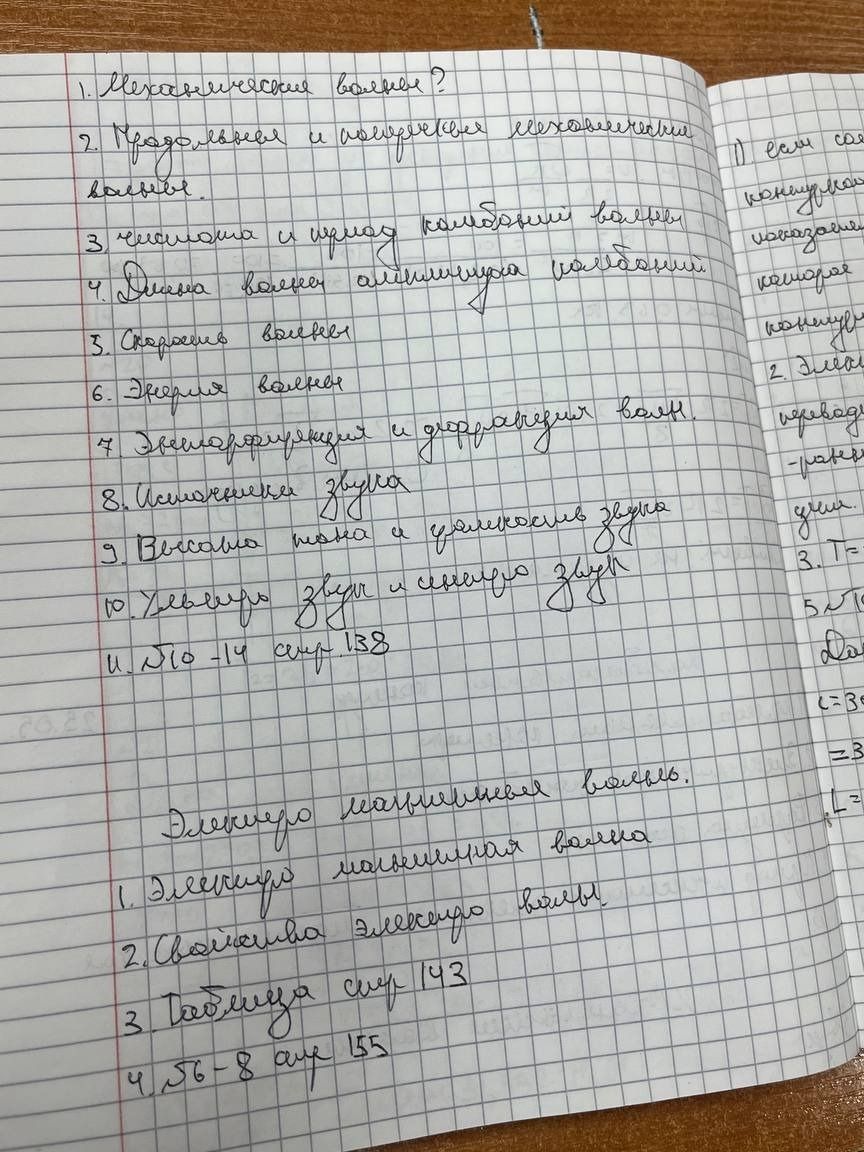 1. Механические волны?
2. Продольные и поперечные механические
волны.
3. Частота и период колебаний волны
4. Длина волны амплитуда колебаний
5. Скорость волны
6. Энергия волны
7. Энтарфиренция и дифракция волн.
8. Источники звука
9. Высота тона и громкость звука
10. Ультро звук и инфро звук
11. №10-14 стр. 138
Электро магнитные волны.
1. Электро магнитная волна
2. Свойства электро волны.
3. Таблица стр 143
4. №6-8 стр 155
1) если
контур
показа
которое
контур
2. Элек
перевод
-ран
3. T=
5 №10
=3
L=